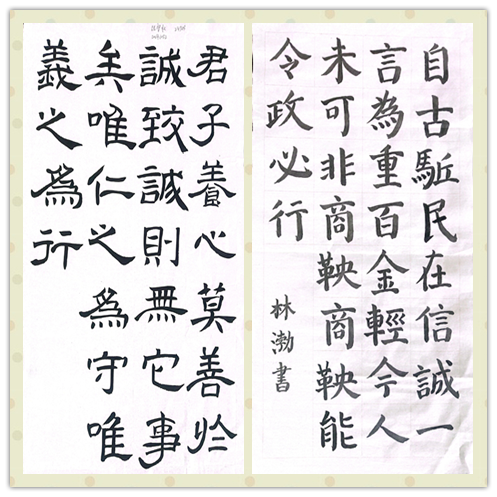 君子養心莫善於
誠致誠則無它事
矣唯仁之為守唯
義之爲行
自古駈民在信誠一
言為重百金輕今人
未可非商鞅商鞅能
令政必行
林渤書